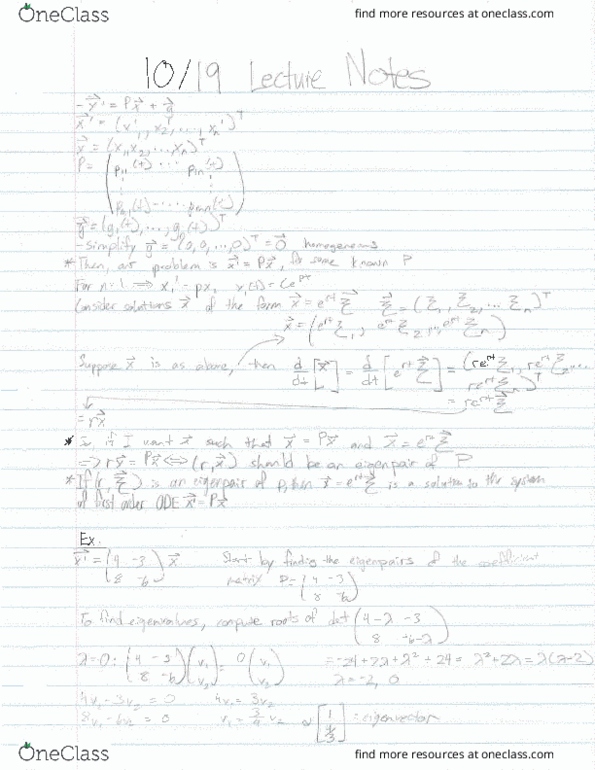 OneClass
find more resources at oneclass.com
10/19 Lecture Notes
- x⃗' = Px⃗ + g⃗
x⃗' = (x₁', x₂', ..., xₙ')ᵀ
x⃗ = (x₁, x₂, ..., xₙ)ᵀ
P = (p₁₁(t) ... p₁ₙ(t)
pₙ₁(t) ... pₙₙ(t))
g⃗ = (g₁(t), ..., gₙ(t))ᵀ
- simplify g⃗ = (0, 0, ..., 0)ᵀ = 0⃗ homogeneous
* Then, our problem is x⃗' = Px⃗, for some known P
For n=1 ⟹ x₁' = px₁ x₁(t) = Ce^pt
Consider solutions x⃗ of the form x⃗ = e^rt ξ⃗ ξ⃗ = (ξ₁, ξ₂, ... ξₙ)ᵀ
x⃗ = (e^rt ξ₁, e^rt ξ₂, ..., e^rt ξₙ)
Suppose x⃗ is as above, then d/dt [x⃗] = d/dt [e^rt ξ⃗] = (re^rt ξ₁, re^rt ξ₂, ...
re^rt ξₙ)ᵀ
= re^rt ξ⃗
= rx⃗
* if I want x⃗ such that x⃗' = Px⃗ and x⃗ = e^rt ξ⃗
⟹ rx⃗ = Px⃗ ⟺ (r, x⃗) should be an eigenpair of P
* If (r, ξ⃗) is an eigenpair of P, then x⃗ = e^rt ξ⃗ is a solution to the system
of first order ODE x⃗' = Px⃗
Ex.
x⃗' = (4 -3
8 -6) x⃗ Start by finding the eigenpairs of the coefficient
matrix P = (4 -3
8 -6)
To find eigenvalues, compute roots of det (4-λ -3
8 -6-λ)
λ=0: (4 -3
8 -6) (v₁
v₂) = 0 (v₁
v₂) = -24+2λ+λ²+24 = λ²+2λ = λ(λ-2)
λ = -2, 0
4v₁ - 3v₂ = 0 4v₁ = 3v₂
8v₁ - 6v₂ = 0 v₁ = 3/4 v₂ [1
4/3] : eigenvector
OneClass
find more resources at oneclass.com